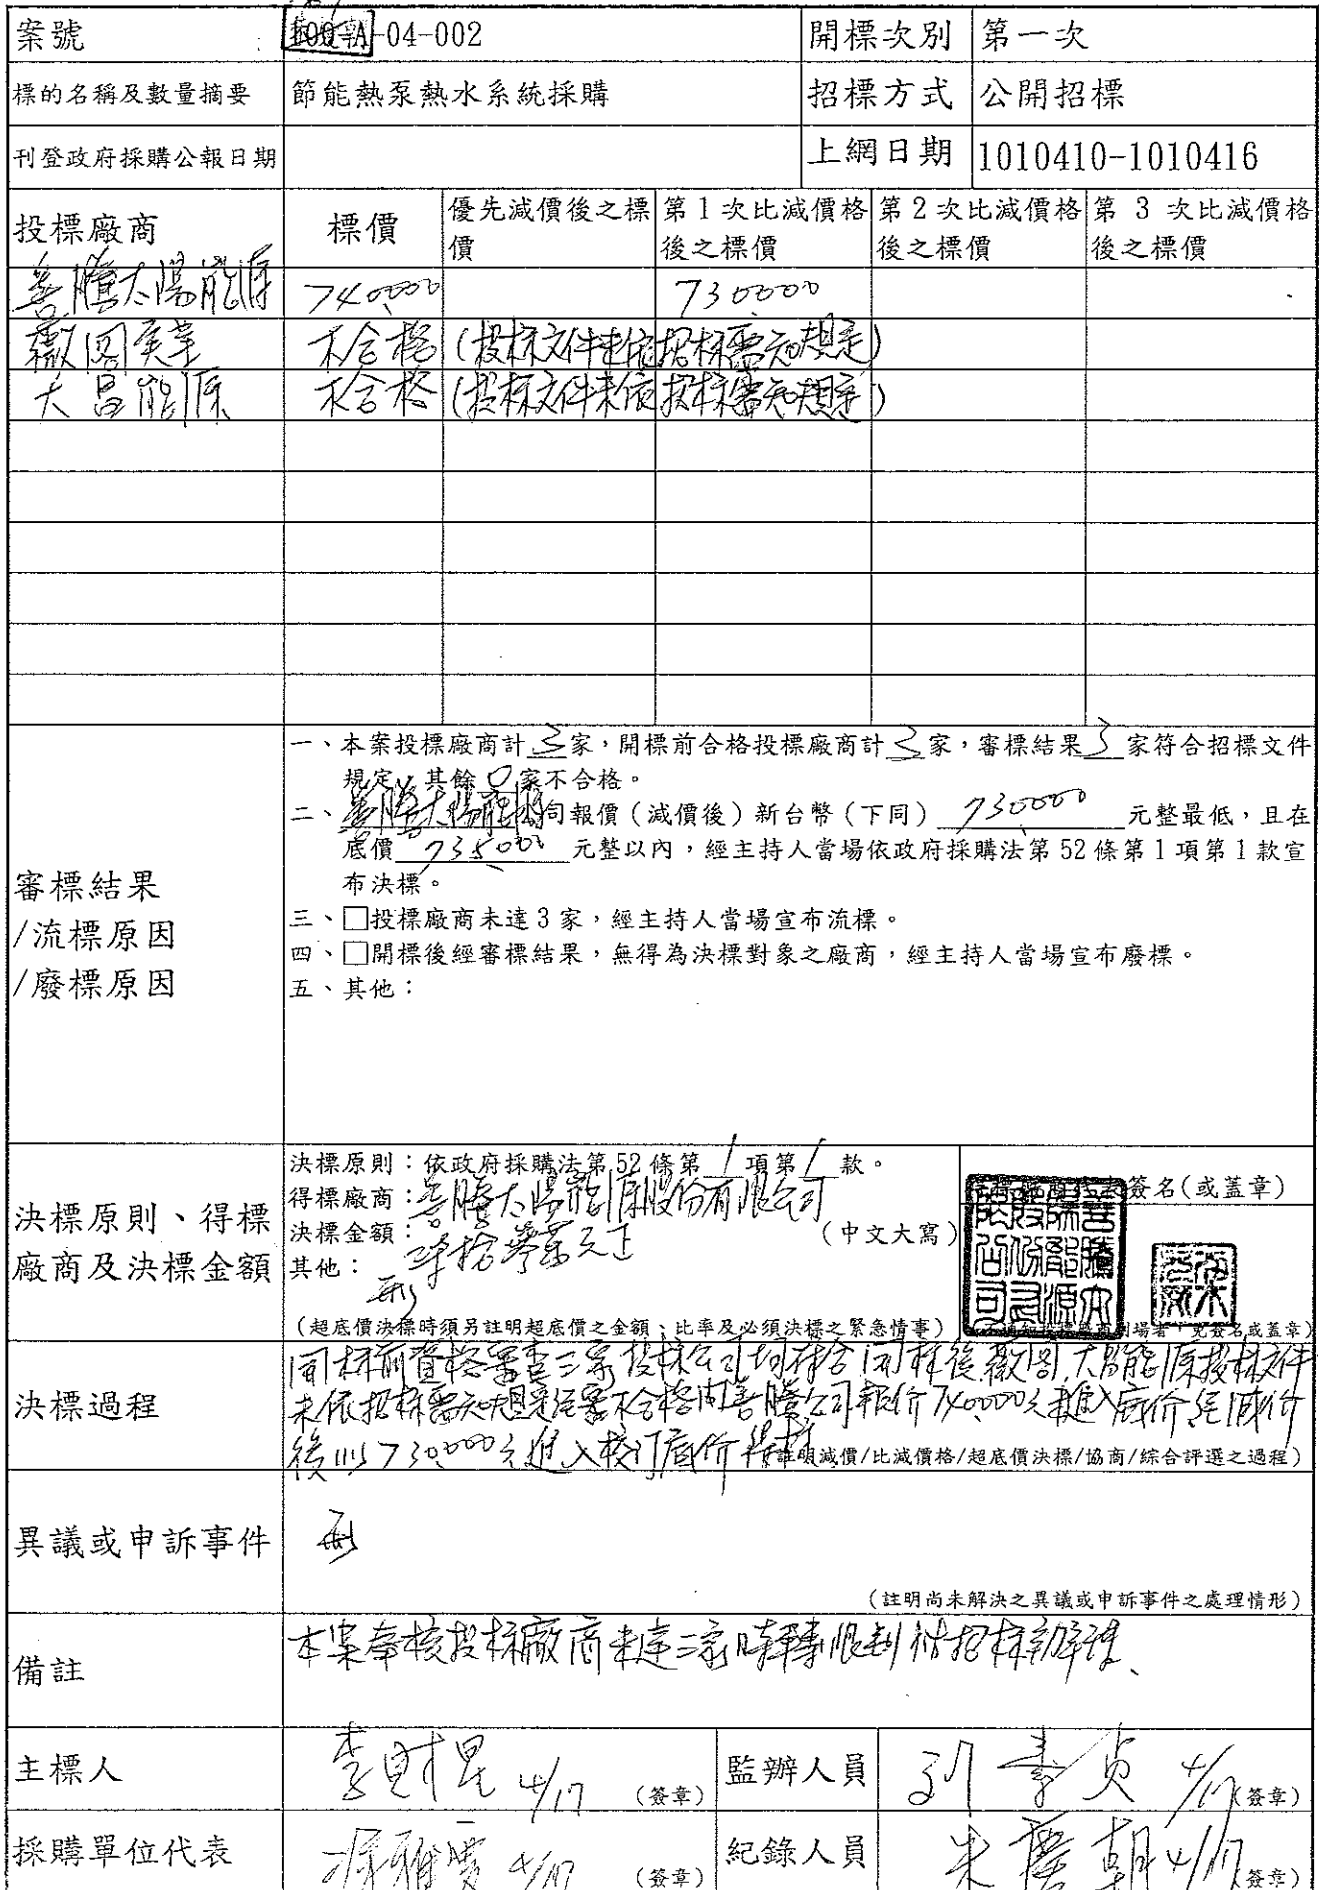 案號 -04-002 開標次別 第一次
標的名稱及數量摘要 節能熱泵熱水系統採購 招標方式 公開招標
刊登政府採購公報日期 上網日期 1010410-1010416
投標廠商 標價 優先減價後之標價 第1次比減價格後之標價 第2次比減價格後之標價 第 3 次比減價格後之標價
善騰太陽能源 740000 730000
薇閣 不合格 (投標文件未依招標需知規定)
大昌能源 不合格 (投標文件未依招標需知規定)
審標結果
/流標原因
/廢標原因
一、本案投標廠商計 三 家,開標前合格投標廠商計 三 家,審標結果 3 家符合招標文件
規定,其餘 0 家不合格。
二、善騰太陽能源 公司報價(減價後)新台幣(下同) 730000 元整最低,且在
底價 735000 元整以內,經主持人當場依政府採購法第52條第1項第1款宣
布決標。
三、□投標廠商未達3家,經主持人當場宣布流標。
四、□開標後經審標結果,無得為決標對象之廠商,經主持人當場宣布廢標。
五、其他:
決標原則、得標
廠商及決標金額
決標原則:依政府採購法第52條第 1 項第 1 款。
得標廠商:善騰太陽能源股份有限公司
決標金額:柒拾參萬元正 (中文大寫)
其他:無
(超底價決標時須另註明超底價之金額、比率及必須決標之緊急情事)
簽名(或蓋章)
善騰太陽能源股份有限公司
到場者,免簽名或蓋章)
決標過程
開標前資格審查三家投標公司均符合開標後薇閣.大昌能源投標文件
未依招標需知規定經審不合格 善騰公司報價740000元未進入底價經減價
後以730000元進入核訂底價得標
註明減價/比減價格/超底價決標/協商/綜合評選之過程)
異議或申訴事件 無
(註明尚未解決之異議或申訴事件之處理情形)
備註 本案奉核投標廠商未達三家時 限制性招標辦理
主標人 李財星 4/17 (簽章) 監辦人員 劉素貞 4/17 (簽章)
採購單位代表 4/17 (簽章) 紀錄人員 朱慶朝 4/17 (簽章)